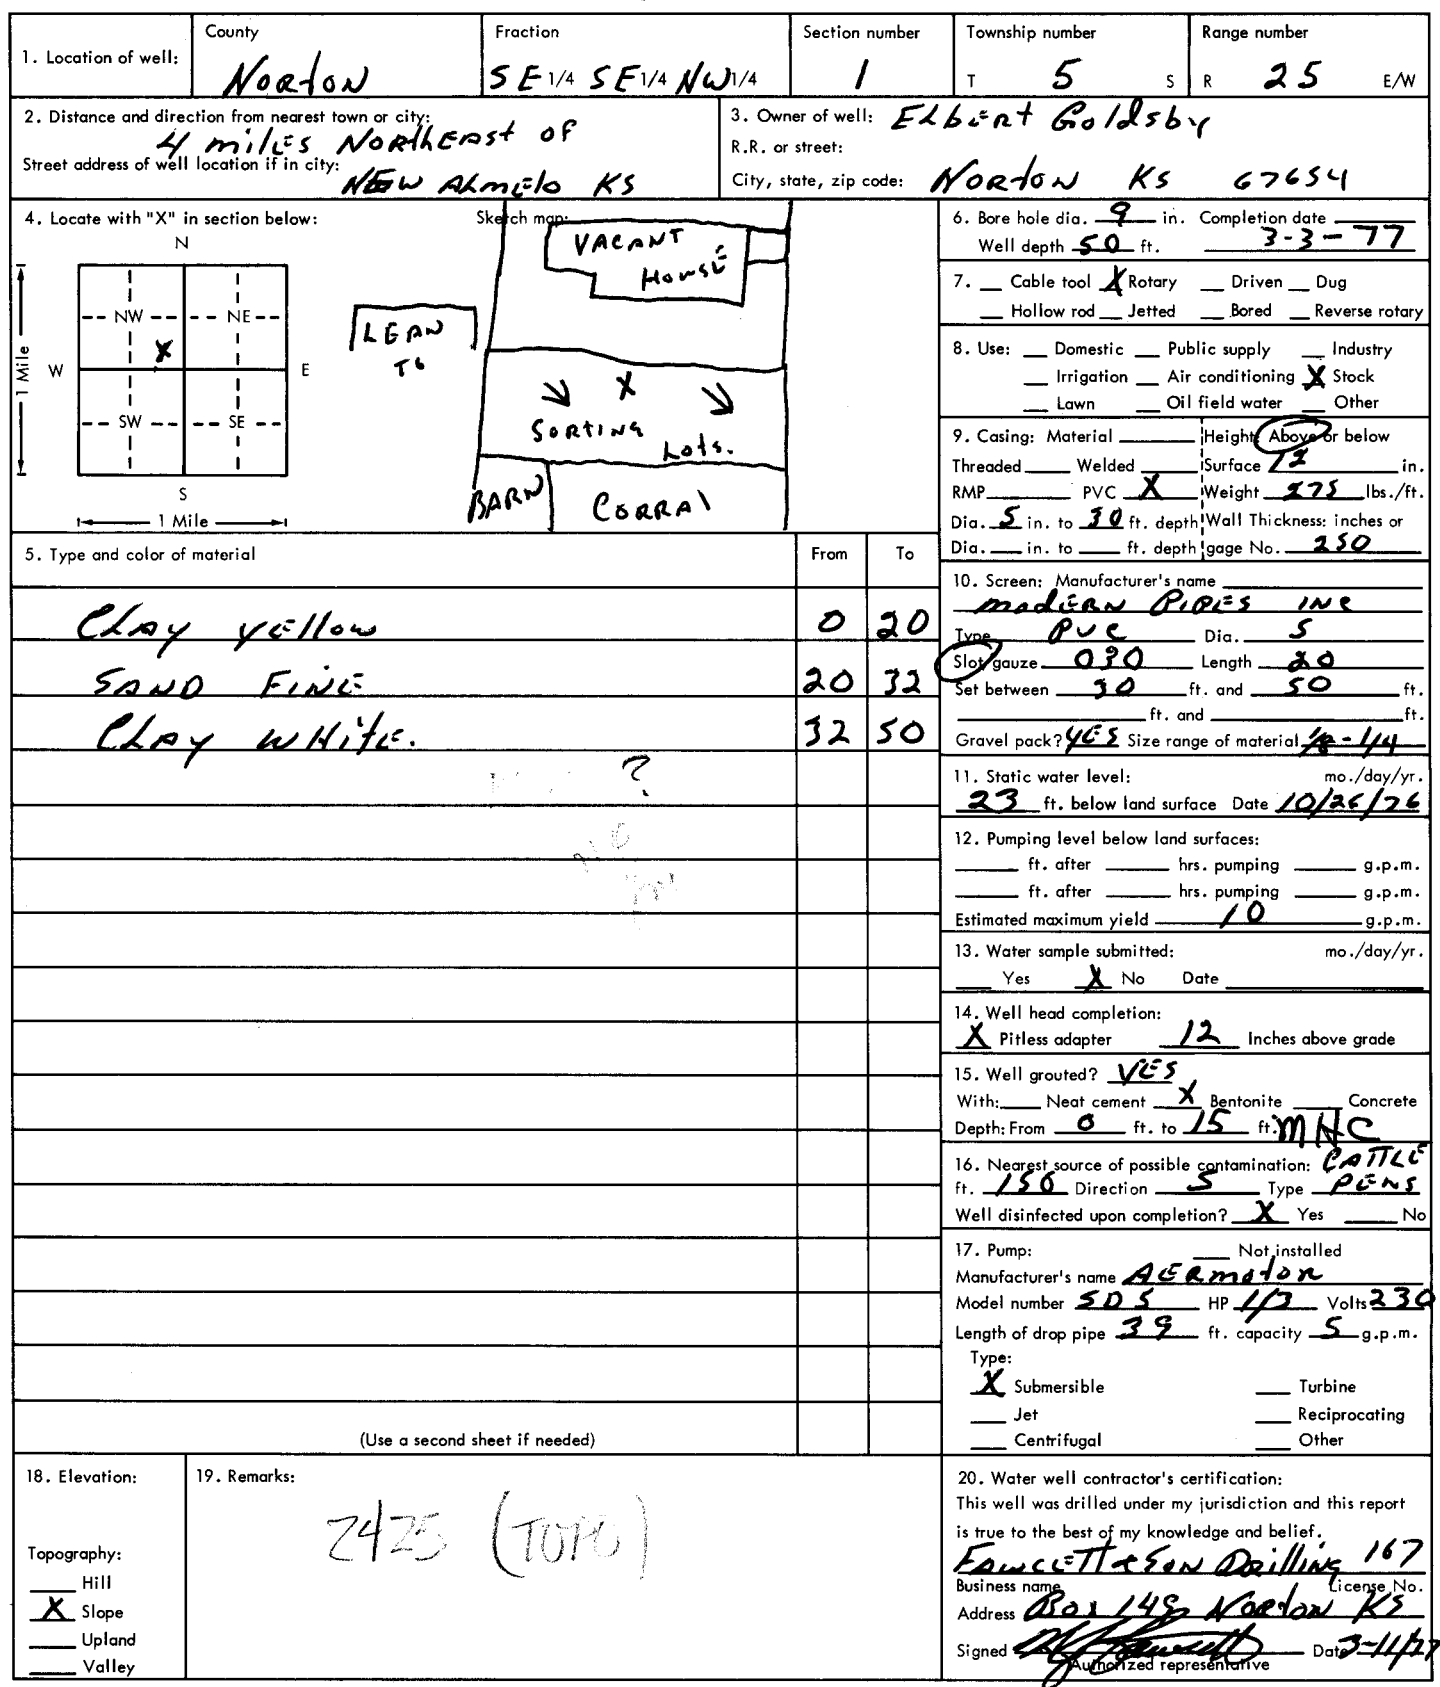 1. Location of well: County Norton Fraction SE 1/4 SE 1/4 NW 1/4 Section number 1 Township number T 5 S Range number R 25 E/W
2. Distance and direction from nearest town or city: 4 miles NortHEast of
Street address of well location if in city: NEW AlmElo KS
3. Owner of well: Elbert Goldsby
R.R. or street:
City, state, zip code: Norton KS 67654
4. Locate with "X" in section below:
N
NW NE
X
W E
SW SE
S
1 Mile
1 Mile
Sketch map:
VACANT
HOUSE
LEAN
TO
X
SORTING
Lots.
BARN
CORRAl
5. Type and color of material From To
Clay yellow 0 20
SAND FINE 20 32
Clay white. 32 50
?
(Use a second sheet if needed)
6. Bore hole dia. 9 in. Completion date
Well depth 50 ft. 3-3-77
7. Cable tool X Rotary Driven Dug
Hollow rod Jetted Bored Reverse rotary
8. Use: Domestic Public supply Industry
Irrigation Air conditioning X Stock
Lawn Oil field water Other
9. Casing: Material Height: Above or below
Threaded Welded Surface 12 in.
RMP PVC X Weight 275 lbs./ft.
Dia. 5 in. to 30 ft. depth Wall Thickness: inches or
Dia. in. to ft. depth gage No. 250
10. Screen: Manufacturer's name
modERN PIPES INC
Type PVC Dia. 5
Slot/gauze 030 Length 20
Set between 30 ft. and 50 ft.
ft. and ft.
Gravel pack? YES Size range of material 1/8-1/4
11. Static water level: mo./day/yr.
23 ft. below land surface Date 10/26/76
12. Pumping level below land surfaces:
ft. after hrs. pumping g.p.m.
ft. after hrs. pumping g.p.m.
Estimated maximum yield 10 g.p.m.
13. Water sample submitted: mo./day/yr.
Yes X No Date
14. Well head completion:
X Pitless adapter 12 Inches above grade
15. Well grouted? YES
With: Neat cement X Bentonite Concrete
Depth: From 0 ft. to 15 ft. MHC
16. Nearest source of possible contamination: CATTLE
ft. 150 Direction S Type PENS
Well disinfected upon completion? X Yes No
17. Pump: Not installed
Manufacturer's name AERmotor
Model number SD5 HP 1/3 Volts 230
Length of drop pipe 39 ft. capacity 5 g.p.m.
Type:
X Submersible Turbine
Jet Reciprocating
Centrifugal Other
18. Elevation:
Topography:
Hill
X Slope
Upland
Valley
19. Remarks:
2425 (TOPO)
20. Water well contractor's certification:
This well was drilled under my jurisdiction and this report
is true to the best of my knowledge and belief.
Fawcett & Son Drilling 167
Business name License No.
Address Box 149 Norton KS
Signed Date 3-11/77
Authorized representative